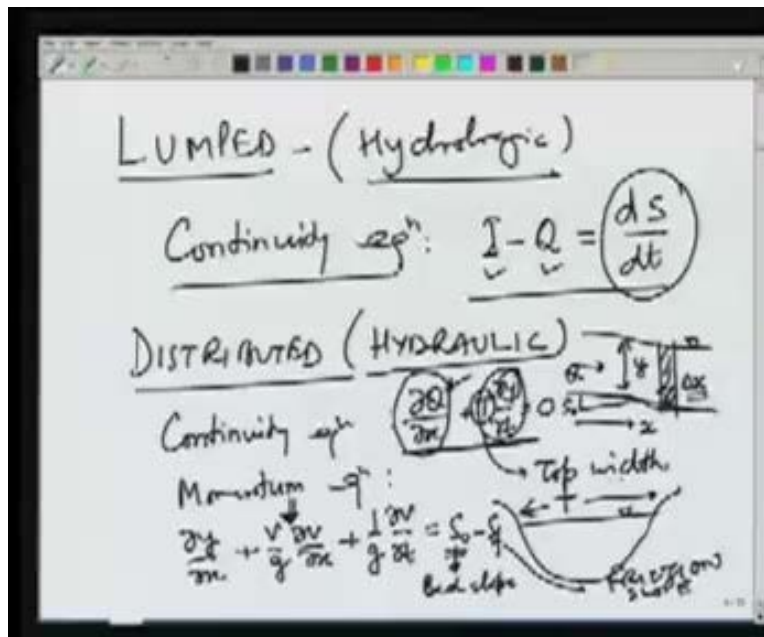 LUMPED - (Hydrologic)
Continuity eqⁿ: I - Q = dS/dt
DISTRIBUTED (HYDRAULIC)
Q → y Δx
S₀ → x
Continuity eqⁿ ∂Q/∂x + T ∂y/∂t = 0
→ Top width
Momentum eqⁿ:
← T →
∂y/∂x + V/g ∂V/∂x + 1/g ∂V/∂t = S₀ - Sf
Bed slope
FRICTION SLOPE